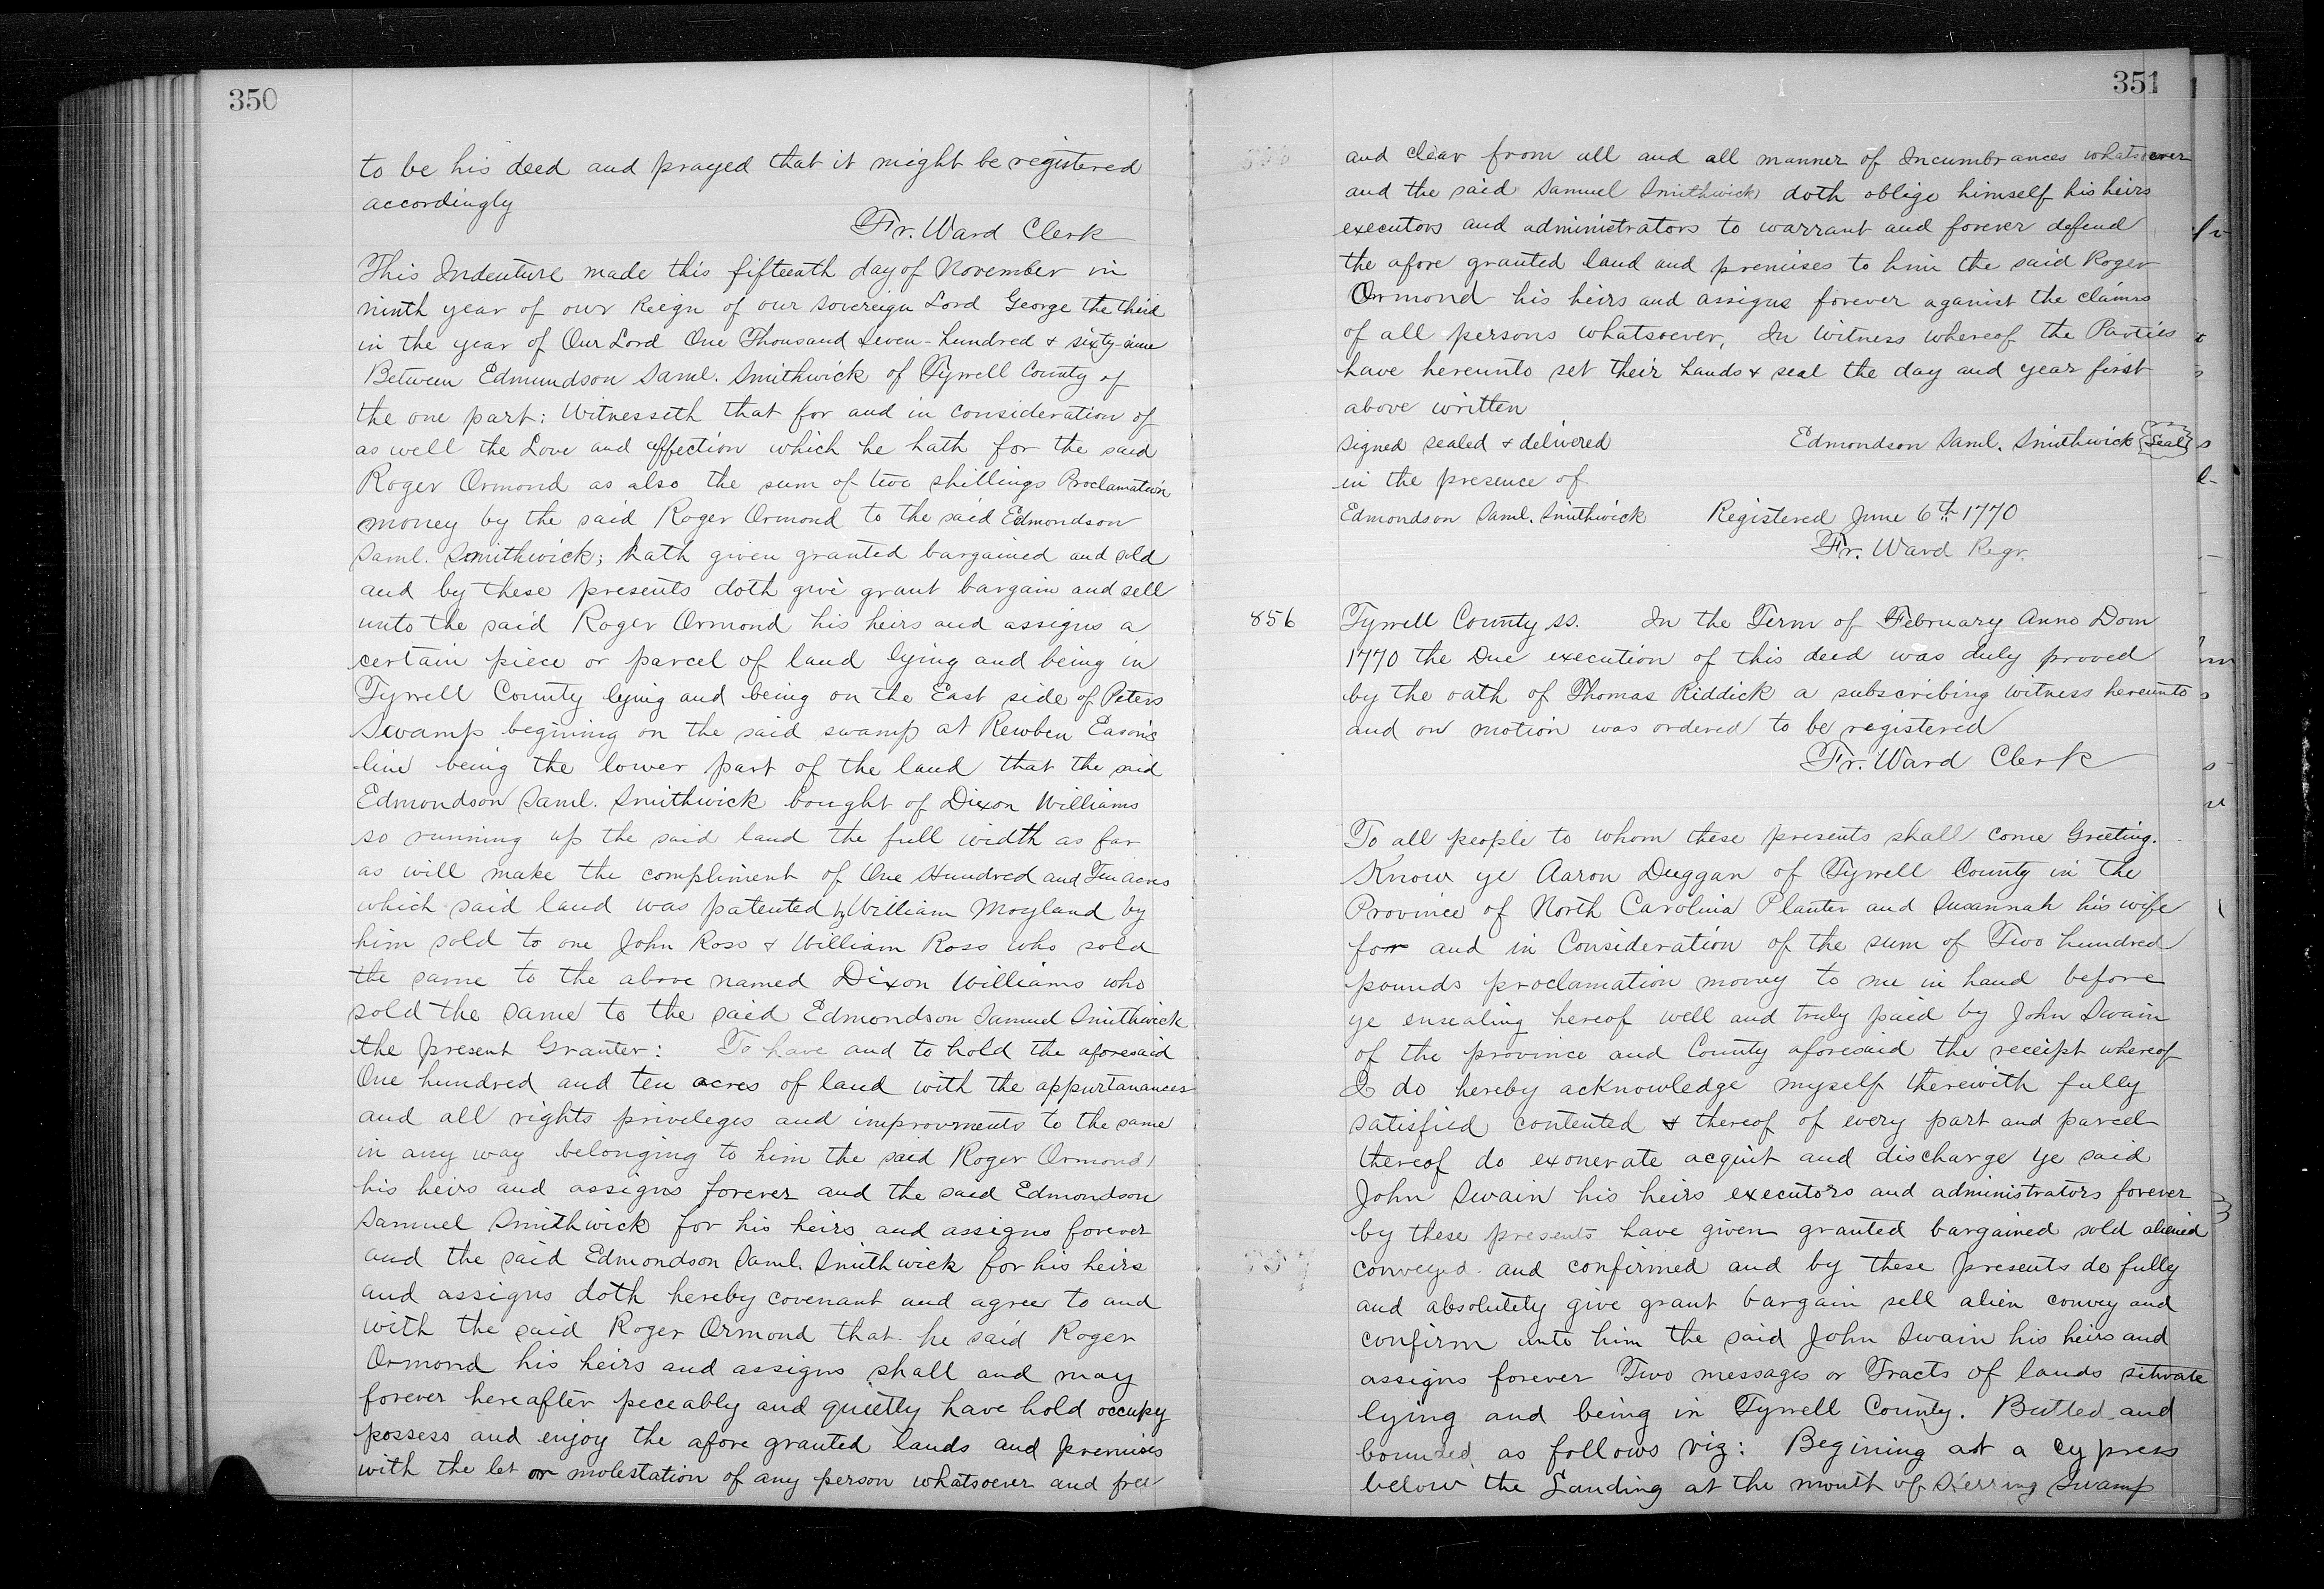 350
to be his deed and prayed that it might be registered
accordingly
Fr. Ward Clerk
This Indenture made this fifteenth day of November in
ninth year of our Reign of our Sovereign Lord George the third
in the year of Our Lord One Thousand Seven-hundred & sixty-nine
Between Edmundson Saml. Smithwick of Tyrrell County of
the one part: Witnesseth that for and in consideration of
as well the Love and affection which he hath for the said
Roger Ormond as also the sum of two shillings Proclamation
money by the said Roger Ormond to the said Edmondson
Saml. Smithwick; hath given granted bargained and sold
and by these presents doth give grant bargain and sell
unto the said Roger Ormond his heirs and assigns a
certain piece or parcel of land lying and being in
Tyrrell County lying and being on the East side of Peters
Swamp begining on the said swamp at Rewben Eason's
line being the lower part of the land that the said
Edmondson Saml. Smithwick bought of Dixon Williams
so running up the said land the full width as far
as will make the compliment of One Hundred and Ten acres
which said land was patented by William Moyland by
him sold to one John Ross & William Ross who sold
the same to the above named Dixon Williams who
sold the same to the said Edmondson Samuel Smithwick
the present Granter: To have and to hold the aforesaid
One hundred and ten acres of land with the appurtanances
and all rights privileges and improvments to the same
in any way belonging to him the said Roger Ormond
his heirs and assigns forever and the said Edmondson
Samuel Smithwick for his heirs and assigns forever
and the said Edmondson Saml. Smithwick for his heirs
and assigns doth hereby covenant and agree to and
with the said Roger Ormond that he said Roger
Ormond his heirs and assigns shall and may
forever hereafter peceably and quietly have hold occupy
possess and enjoy the afore granted lands and premises
with the let or molestation of any person whatsoever and free
351
and clear from all and all manner of Incumbrances whatsoever
and the said Samuel Smithwick doth oblige himself his heirs
executors and administrators to warrant and forever defend
the afore granted land and premises to him the said Roger
Ormond his heirs and assigns forever against the claims
of all persons whatsoever, In Witness whereof the Parties
have hereunto set their hands & seal the day and year first
above written
signed sealed & delivered Edmondson Saml. Smithwick Seal
in the presence of
Edmondson Saml. Smithwick Registered June 6th 1770
Fr. Ward Regr.
856 Tyrrell County ss. In the Term of February Anno Dom
1770 the Due execution of this deed was duly proved
by the oath of Thomas Riddick a subscribing witness hereunto
and on motion was ordered to be registered
Fr. Ward Clerk
To all people to whom these presents shall come Greeting.
Know ye Aaron Duggan of Tyrrell County in the
Province of North Carolina Planter and Susannah his wife
for and in Consideration of the sum of Two hundred
pounds proclamation money to me in hand before
ye ensealing hereof well and truly paid by John Swain
of the province and County aforesaid the receipt whereof
I do hereby acknowledge myself therewith fully
satisfied contented & thereof of every part and parcel
thereof do exonerate acquit and discharge ye said
John Swain his heirs executors and administrators forever
by these presents have given granted bargained sold aliened
conveyed and confirmed and by these presents do fully
and absolutely give grant bargain sell alien convey and
confirm unto him the said John Swain his heirs and
assigns forever Two messages or Tracts of lands situate
lying and being in Tyrrell County. Butted and
bounded as follows viz: Begining at a cypress
below the Landing at the mouth of Herring Swamp